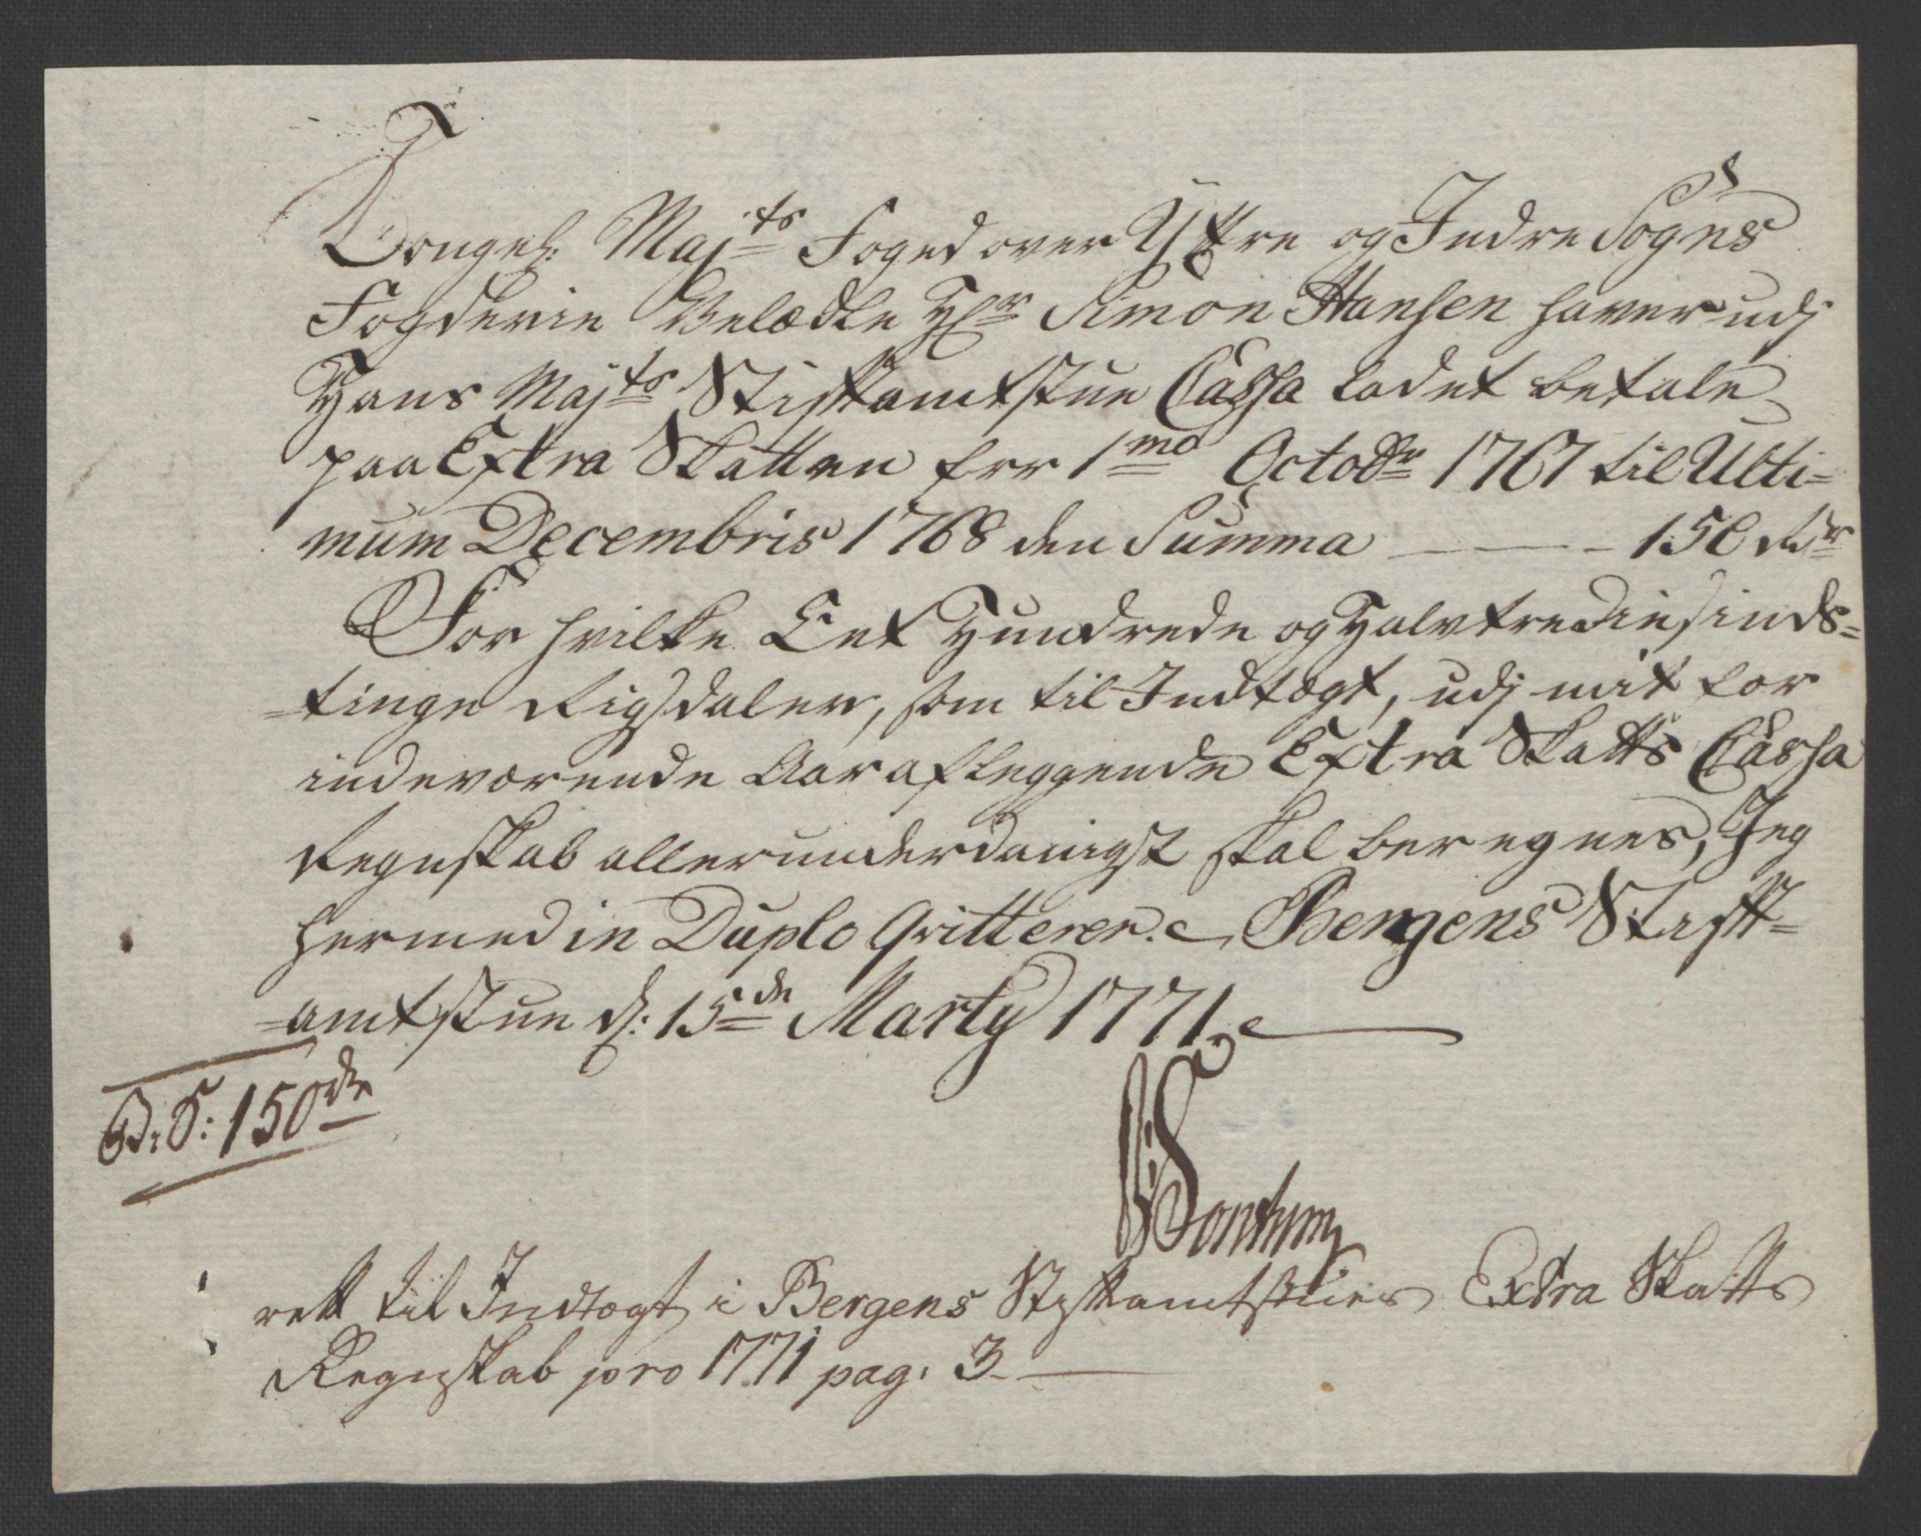 Kongel: Maj:ts Foged over Yttre og Indre Sogns
Fogderie Velædle Hr Simon Hansen haver udj
Hans Maj:ts Stiftamtstue Cassa ladet betale
paa Extra Skatten fra 1mo Octobr 1767 til Ulti=
mum Decembris 1768 den Summa — — 150 Rdr
For hvilke Eet Hundrede og Halvtrediesinds=
=tinge Rigsdaler, som til Indtægt, udj mit for
indeværende Aar aflæggende Extra Skatts Cassa
Regnskab allerunderdanigst skal beregnes, Jeg
hermed in Duplo Qvitterer. Bergens Stift=
=amtstue d: 15de Marty 1771.
150 dr
Sontum
rett til Indtægt i Bergens Stiftamtstues Extra Skatts
Regnskab pro 1771 pag: 3